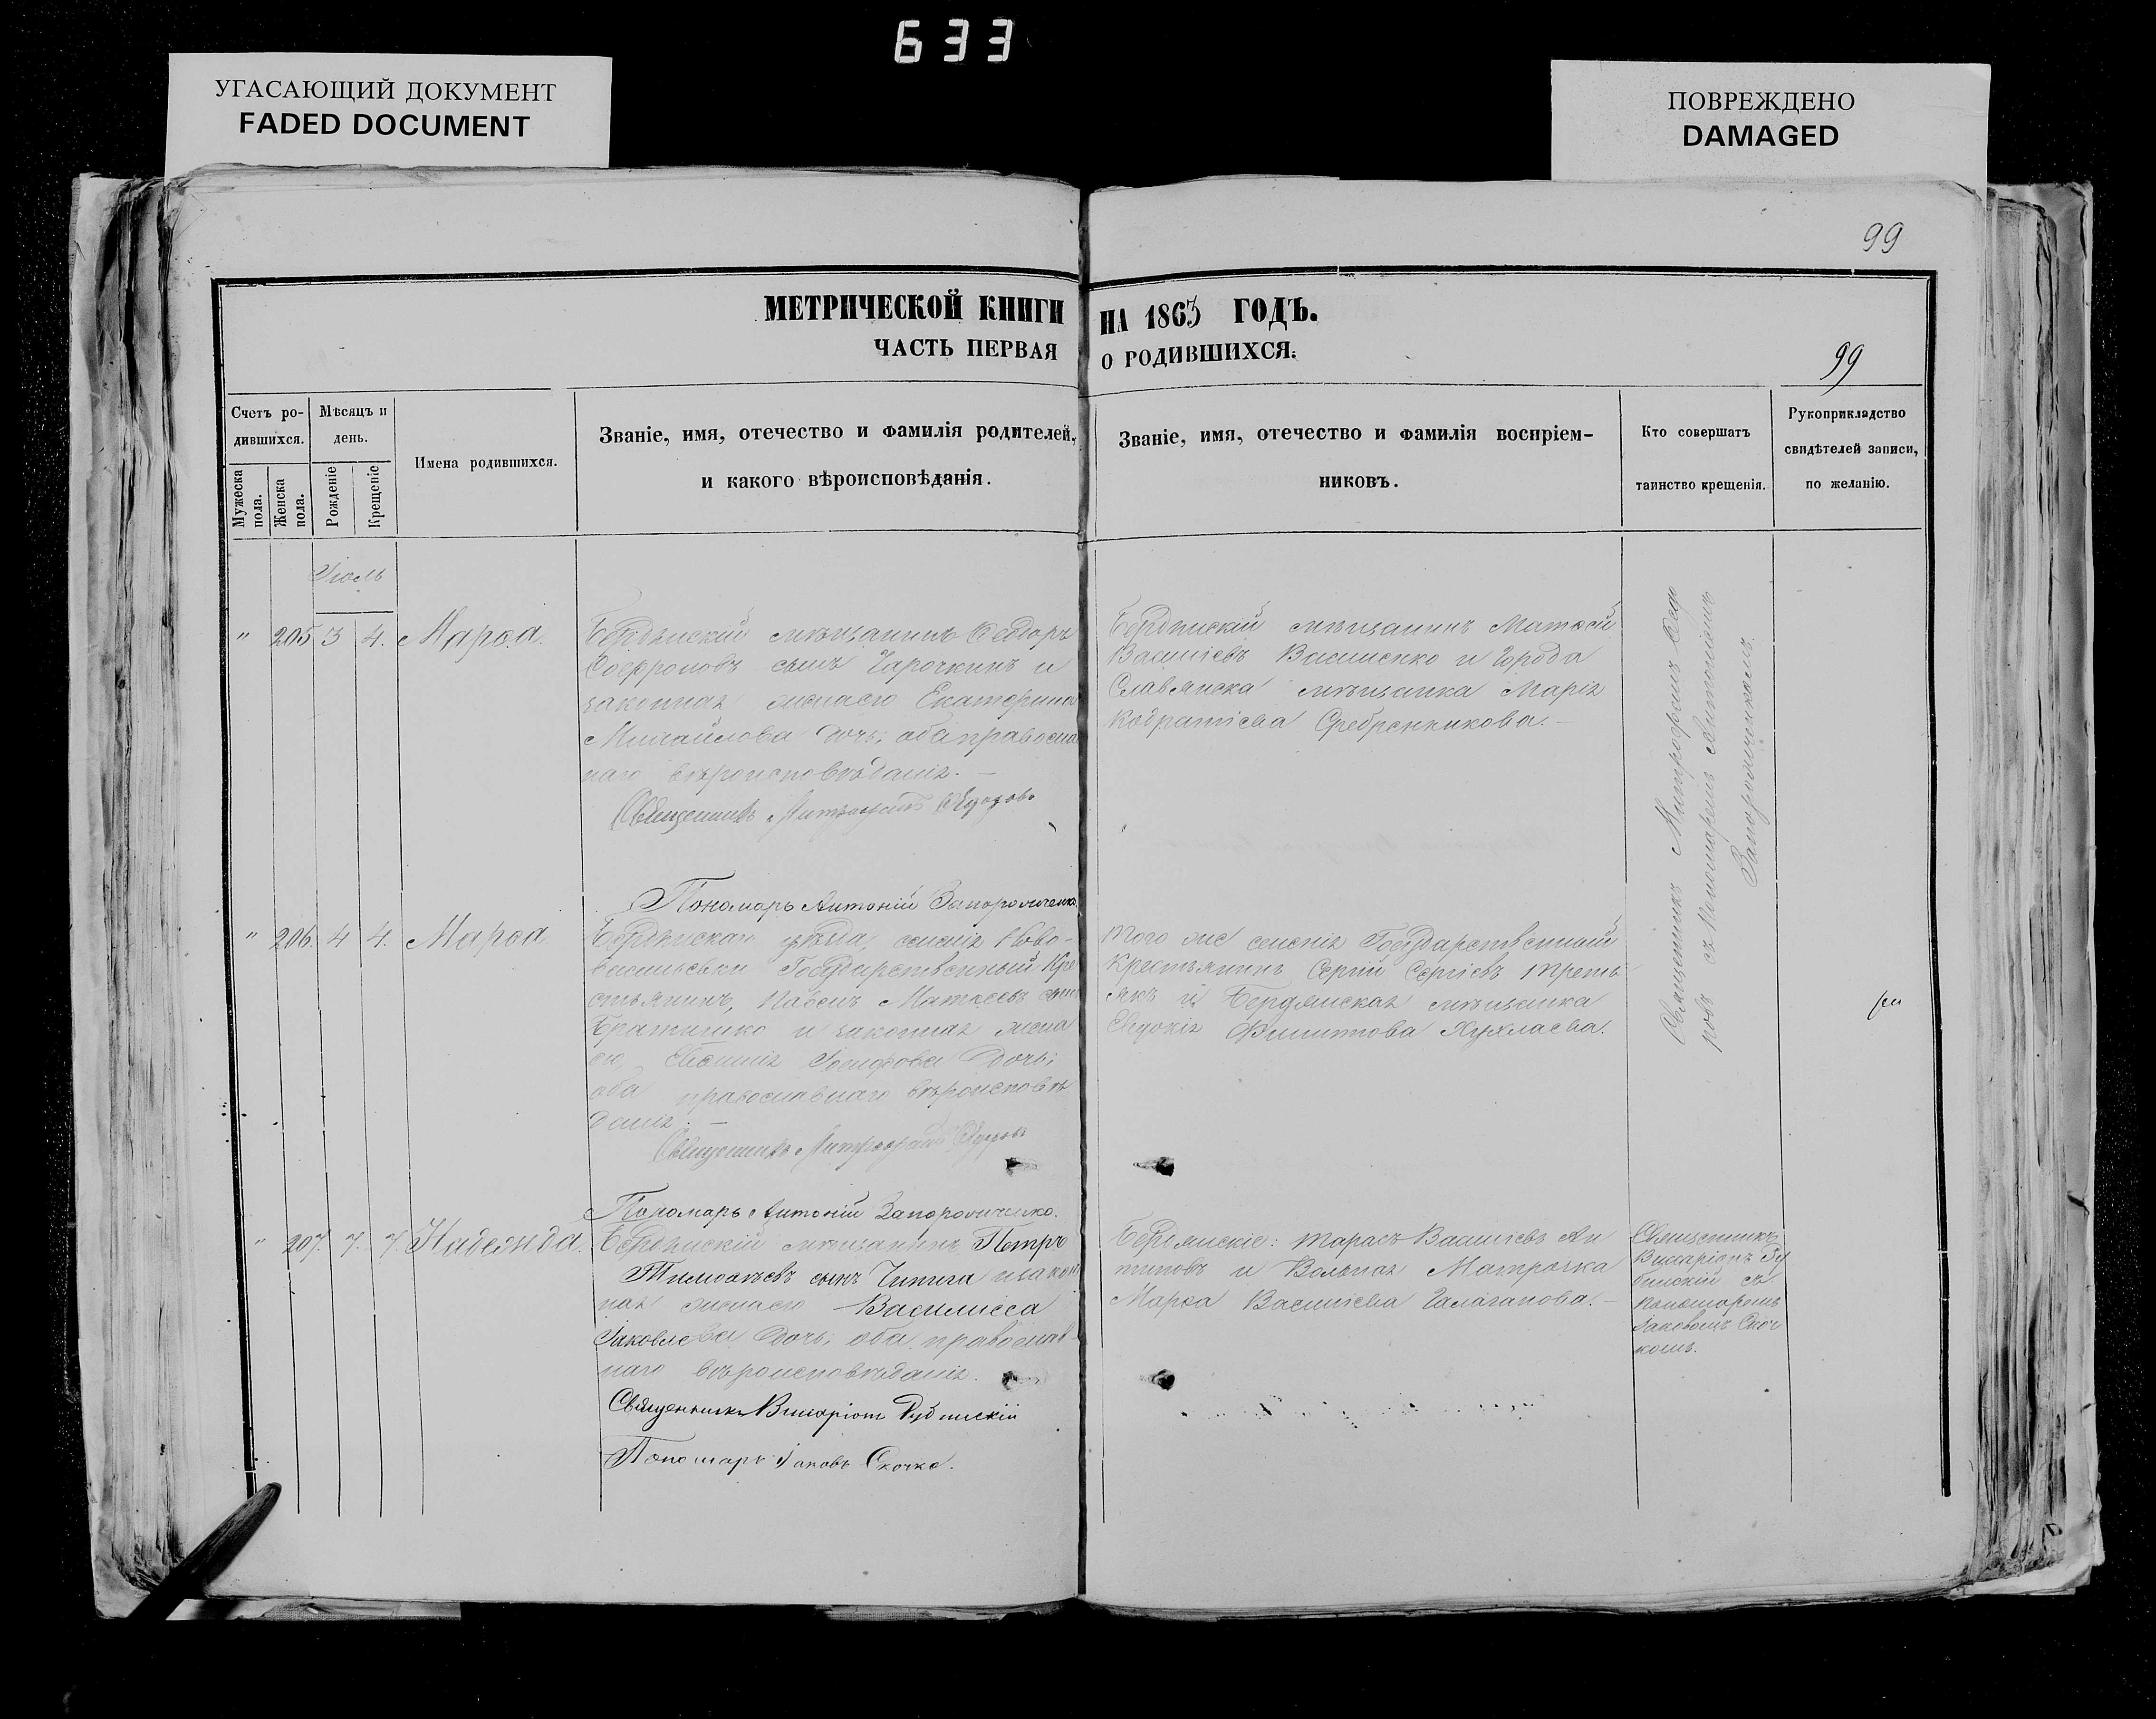 633
УГАСАЮЩИЙ ДОКУМЕНТ
FADED DOCUMENT
ПОВРЕЖДЕНО
DAMAGED
99
МЕТРИЧЕСКОЙ КНИГИ НА 1863 ГОДЪ.
ЧАСТЬ ПЕРВАЯ О РОДИВШИХСЯ.
99
Счетъ ро-
дившихся.
Мѣсяцъ и
день.
Мужеска
пола.
Женска
пола.
Рожденіе
Крещеніе
Имена родившихся.
Званіе, имя, отечество и фамилія родителей,
и какого вѣроисповѣданія.
Званіе, имя, отечество и фамилія воспріем-
никовъ.
Кто совершатъ
таинство крещенія.
Рукоприкладство
свидѣтелей записи,
по желанію.
Іюль
" 205 3 4. Марѳа.
Бердянскій мѣщанинъ Ѳеодоръ
Софроновъ сынъ Чарочкинъ и
законная жена его Екатерина
Михайлова дочь; оба православ
наго вѣроисповѣданія. —
Священникъ Митрофанъ
Пономарь Антоній Запорожченко
Бердянскій мѣщанинъ Матѳей
Василіевъ Василенко и города
Славянска мѣщанка Марія
Кодратіева Сребренникова. —
Священникъ Митрофанъ Ѳедо
ровъ съ Пономаремъ Антоніемъ
Запорожченкомъ.
" 206. 4 4. Марѳа
Бердянскаго уѣзда, селенія Ново-
васильевки Государственный Кре
стьянинъ, Павелъ Матѳеевъ сынъ
и законная жена
его, Іосифова дочь;
оба православнаго вѣроисповѣ
данія. —
Священникъ Митрофанъ
Пономарь Антоній Запорожченко.
Того же селенія Государственный
Крестьянинъ Сергій Сергіевъ Треть
якъ и Бердянская мѣщанка
Евдокія Филиппова Кухлаева.
" 207. 7. 7 Надежда.
Бердянскій мѣщанинъ Петръ
Тимоѳеевъ сынъ Чипига и закон
ная жена его Василисса
Іаковлева дочь; оба православ
наго вѣроисповѣданія.
Священникъ Висаріонъ
Пономарь Іаковъ Скочко.
Бердянскіе: Тарасъ Василіевъ Ан
типовъ и Вольная Матроска
Марѳа Василіева Галаганова. —
Священникъ
Висаріонъ
съ
Пономаремъ
Іаковомъ Скоч
комъ.